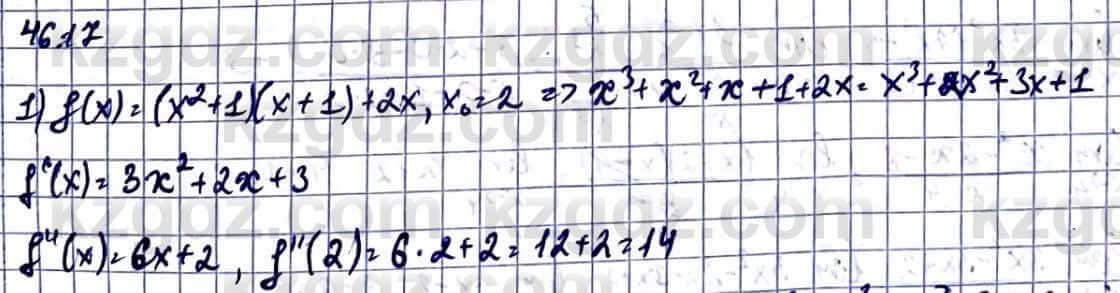 46.17
1) f(x) = (x²+1)(x+1)+2x, x₀=2 => x³+x²+x+1+2x = x³+x²+3x+1
f'(x) = 3x²+2x+3
f"(x) = 6x+2, f"(2) = 6·2+2 = 12+2 = 14
kzgdz.com kzgdz.com
kzgdz.com
kzgdz.com kzgdz.com